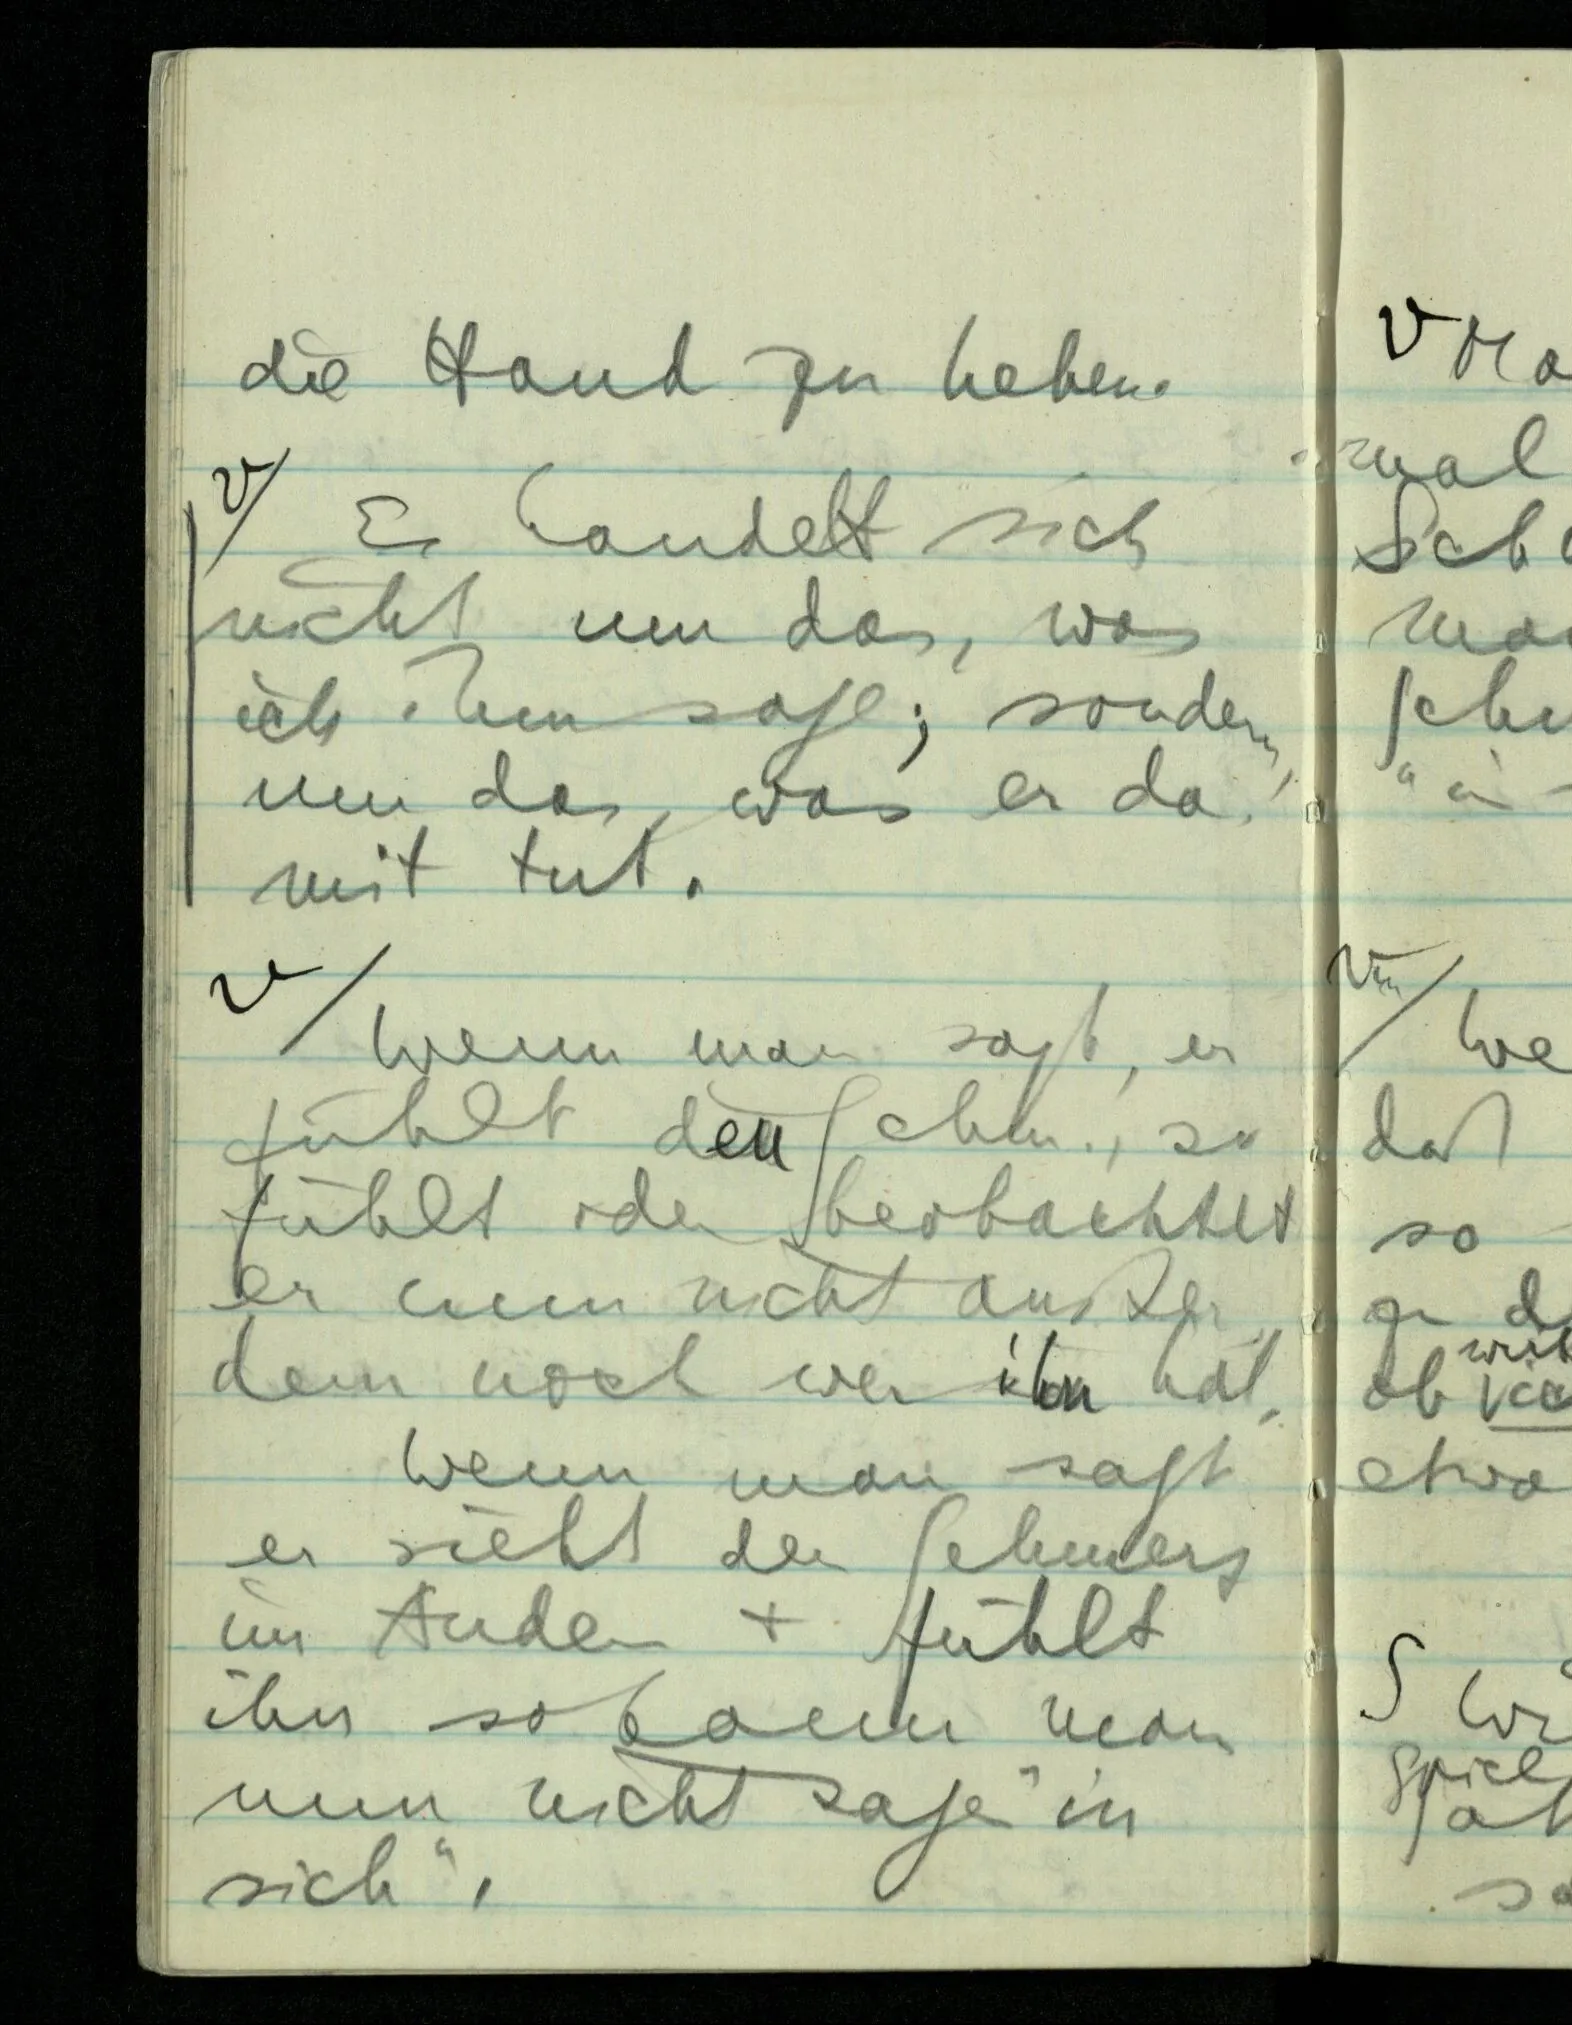 die Hand zu heben.
V/ Es handelt sich
nicht um das, was
ich ihm sage; sondern
um das, was er da-
mit tut.
V/ Wenn man sagt, er
fühlt den Schm., so
fühlt oder beobachtet
er nun nicht außer
dem noch wer ihn hat.
Wenn man sagt
er sieht den Schmerz
im Andern + fühlt
ihn so kann man
nun nicht sagen "in
sich".
V
mal
Sch
"in
/ We
daß
so
ob
etwa
S Wi
Spiel